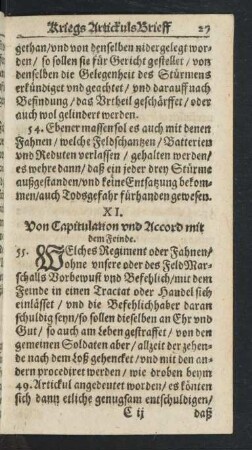 Kriegs ArtickulsBrieff 27
gethan/vnd von denselben nidergelegt wor-
den / so sollen sie für Gericht gestellet / von
denselben die Gelegenheit des Stürmens
erkündiget vnd geachtet / vnd darauff nach
Befindung / das Vrtheil geschärffet / oder
auch wol gelindert werden.
54. Ebener massen sol es auch mit denen
Fahnen / welche Feldschantzen / Batterien
vnd Reduten verlassen / gehalten werden/
es wehre dann/ daß ein jeder drey Stürme
außgestanden/vnd keine Entsatzung bekom-
men/auch Todsgefahr fürhanden gewesen.
XI.
Von Capitulation vnd Accord mit
dem Feinde.
55. WElches Regiment oder Fahnen/
ohne vnsere oder des FeldMar-
schalls Vorbewust vnd Befehlich/mit dem
Feinde in einen Tractat oder Handel sich
einlässet / vnd die Befehlichhaber daran
schuldig seyn/so sollen dieselben an Ehr vnd
Gut / so auch am Leben gestraffet / von den
gemeinen Soldaten aber/allzeit der zehen-
de nach dem Loß gehencket / vnd mit den an-
dern procediret werden / wie droben beym
49. Artickul angedeutet worden / es könten
sich dann etliche genugsam entschuldigen/
C ij daß